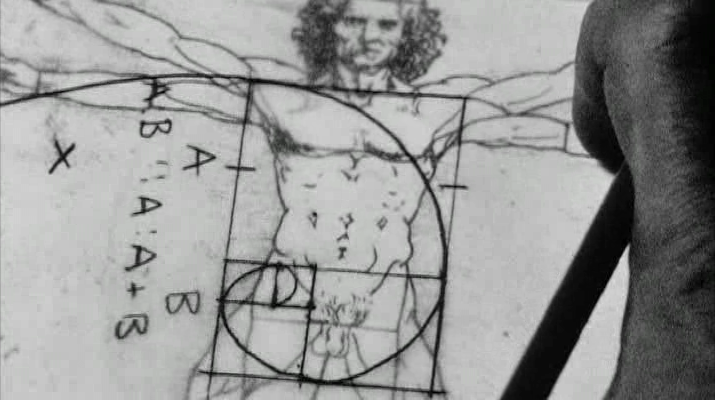 X
A:B::A:A+B
A
B